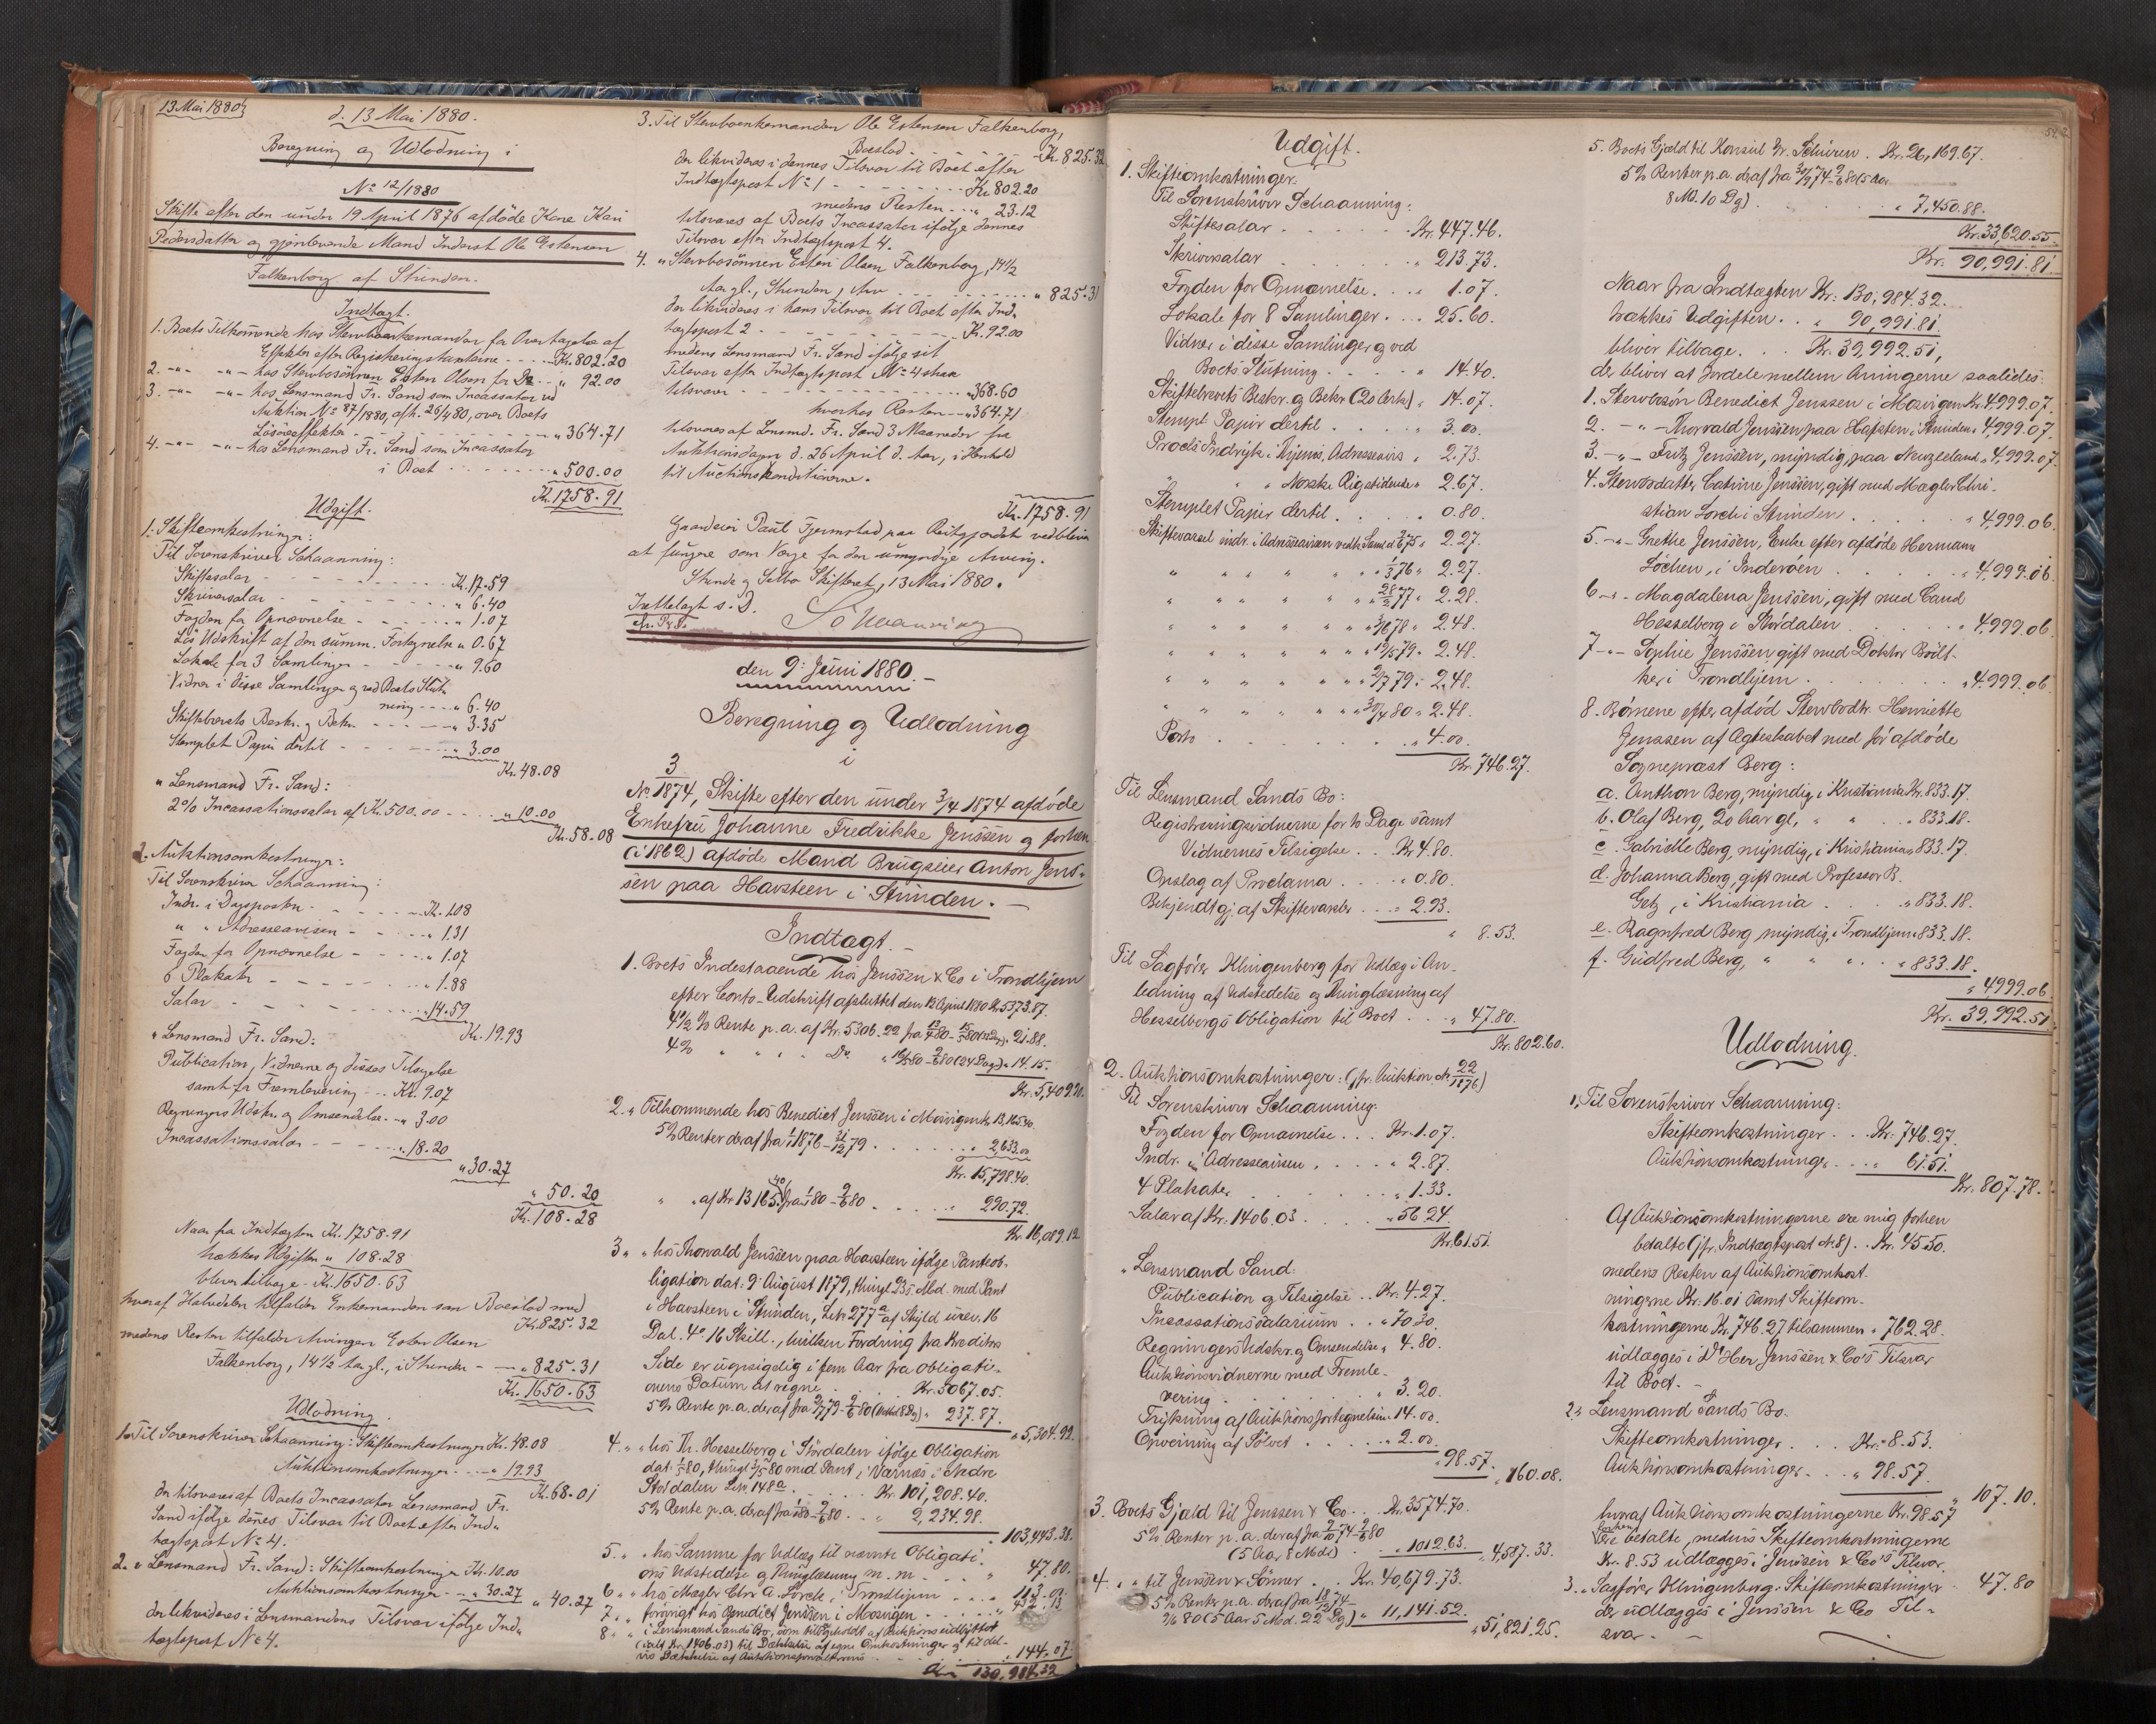 13 Mai 1880
d. 13 Mai 1880.
Beregning og Udlodning i
No 12/1880
Skifte efter den under 19 April 1876 afdöde Kone Kari
Pedersdatter og gjenlevende Mand Inderst Ole Estensen
Falkenborg af Strinden.
Indtægt.
1. Boets Tilkommende hos Stervboenkemanden for Overtagelse af
Effekter efter Registreringstaxterne - - - Kr. 802.20
2. -"- -"- hos Stervbosönnen Esten Olsen for Do - " 92.00
3. -"- -"- hos Lensmand Fr. Sand som Incassator ved
Auktion No 87/1880, afh. 26/4 80, over Boets
Lösöreeffekter - - - " 364.71
4. -"- -"- hos Lensmand Fr. Sand som Incassator
i Boet - - - " 500.00
Kr. 1758.91
Udgift.
1. Skifteomkostninger:
Til Sorenskriver Schaanning:
Skiftesalar - - - Kr. 17.59
Skriversalar - - - " 6.40
Fogden for Opnævnelse - - - " 1.07
Lös Udskrift af den summ. Forsegnelse " 0.67
Lokale for 3 Samlinger - - - " 9.60
Vidner i disse Samlinger og ved Boets Slut-
ning - - - " 6.40
Skiftebrevets Beskr. og Bekr. - - - " 3.35
Stemplet Papir dertil - - - " 3.00
Kr. 48.08
" Lensmand Fr. Sand:
2% Incassationssalar af Kr. 500.00 - - - " 10.00
Kr. 58.08
2. Auktionsomkostninger:
Til Sorenskriver Schaanning:
Indr. i Dagsposten - - - Kr. 1.08
" " Adresseavisen - - - " 1.31
Fogden for Opnævnelse - - - " 1.07
6 Plakater - - - " 1.88
Salar - - - " 14.59
Kr. 19.93
" Lensmand Fr. Sand:
Publication, Vidnerne og disses Tilsigelse
samt for Fremlevering - - Kr. 9.07
Regningers Udskr. og Omsendelse - " 3.00
Incassationssalar - - - " 18.20
" 30.27
" 50.20
Kr. 108.28
Naar fra Indtægten Kr. 1758.91
trækkes Udgiften " 108.28
bliver tilbage - Kr. 1650.63
hvoraf Halvdelen tilfalder Enkemanden som Boeslod med
Kr. 825.32
medens Resten tilfalder Arvingen Esten Olsen
Falkenborg, 14½ Aar gl., i Strinden - - " 825.31
Kr. 1650.63
Udlodning.
1. Til Sorenskriver Schaanning: Skifteomkostninger Kr. 48.08
Auktionsomkostninger - - - " 19.93
Kr. 68.01
der tilsvares af Boets Incassator Lensmand Fr.
Sand ifölge dennes Tilsvar til Boet efter Ind-
tægtspost No 4.
2. " Lensmand Fr. Sand: Skifteomkostninger Kr. 10.00
Auktionsomkostninger - - " 30.27
" 40.27
der likvideres i Lensmandens Tilsvar ifölge Ind-
tægtspost No 4.
3. Til Stervboenkemanden Ole Estensen Falkenborg,
Boeslod - - - Kr. 825.32
der likvideres i dennes Tilsvar til Boet efter
Indtægtspost No 1 - - - Kr. 802.20
medens Resten - - " 23.12
tilsvares af Boets Incassator ifölge dennes
Tilsvar efter Indtægtspost 4.
4. " Stervbosönnen Esten Olsen Falkenborg, 14½
Aar gl., Strinden, Arv - - - " 825.31
der likvideres i hans Tilsvar til Boet efter Ind-
tægtspost 2 - - - Kr. 92.00
medens Lensmand Fr. Sand ifölge sit
Tilsvar efter Indtægtspost No 4 skal
tilsvare - - - " 368.60
hvorhos Resten - " 364.71
tilsvares af Lensmd. Fr. Sand 3 Maaneder fra
Auktionsdagen d. 26 April d. Aar, i Henhold
til Auctionskonditionerne.
Kr. 1758.91
Gaardeier Paul Fjermstad paa Reitgjerdet vedbliver
at fungere som Værge for den umyndige Arving.
Strinda og Selbo Skifteret, 13 Mai 1880.
Irettelagt s. D.
Schaanning
den 9. Juni 1880.
Beregning og Udlodning
i
No 3/1874, Skifte efter den under 3/4 1874 afdöde
Enkefru Johanne Fredrikke Jenssen og forhen
(i 1862) afdöde Mand Brugseier Anton Jens-
sen paa Havsteen i Strinden.
Indtægt.
1. Boets Indestaaende hos Jenssen & Co i Trondhjem
efter Conto-Udskrift afsluttet den 12 April 1880 Kr. 5373.87.
4½ % Rente p. a. af Kr. 5306.22 fra 12/4 80 - 15/5 80 (33 Dage) " 21.88.
4% " " " Do. " 16/5 80 - 9/6 80 (24 Dage) " 14.15.
Kr. 5,409.90.
2. " Tilkommende hos Benedict Jenssen i Mosvigen Kr. 13,165.40.
5% Renter deraf fra 1/1 1876 - 31/12 79 . . . " 2,633.00
Kr. 15,798.40.
" " af Kr. 13165.40 fra 1/1 80 - 9/6 80 . . . " 290.72.
Kr. 16,089.12
3 " " hos Thorvald Jenssen paa Havsteen ifölge Panteob-
ligation dat. 9 August 1879, thingl. D. S. Md. med Pant
i Havsteen i Strinden, Lno 277 a af Skyld urev. 16
Dal. 4o 16 Skill., hvilken Fordring fra Kreditors
Side er uopsigelig i fem Aar fra Obligati-
onens Datum at regne . . . Kr. 5067.05.
5% Rente p. a. deraf fra 2/7 79 - 9/6 80 " 237.87.
" 5,304.92.
4. " " hos Th. Hesselberg i Stördalen ifölge Obligation
dat. 1/1 80, thingl 3/5 80 med Pant i Værnes i Nedre
Stördalen Lno 148 a . . . Kr. 101,208.40.
5% Rente p. a. deraf fra 1/1 80 - 9/6 80 . . " 2,234.98.
" 103,443.38.
5. " " hos Samme for Udlæg til nævnte Obligati-
ons Udstedelse og Thinglæsning m. m. . . . " 47.80.
6 " " hos Mægler Chr. A. Lorck i Trondhjem . . .
7 " " forlods hos Benedict Jenssen i Mosvigen . . .
8 " " i Lensmand Sands Bo, som tilbageholdt af Auktionsudbyttet
(ialt Kr. 1406.03) til Dækkelse af egne Omkostninger og til del-
vis Dækkelse af Auktionsforvalterens . . . " 144.07.
Kr. 130,984.32
Udgift.
1. Skifteomkostninger.
Til Sorenskriver Schaanning:
Skiftesalar . . . Kr. 447.46.
Skriversalar . . . " 213.73.
Fogden for Opnævnelse . . . " 1.07.
Lokale for 8 Samlinger . . . " 25.60.
Vidner i disse Samlinger og ved
Boets Slutning . . . " 14.40.
Skiftebrevets Beskr. og Bekr. (20 Ark) " 14.07.
Stempl. Papir dertil . . . " 3.00.
Procls Indryk. i Nyeni. Adresseavis " 2.73.
" " " Norske Rigstidende " 2.67.
Stemplet Papir dertil . . . " 0.80.
Skiftevarsel indr. i Adresseavisen vedk. Saml. d. 3/6 75 " 2.27.
" " " " " " " 1/3 76 " 2.27.
" " " " " " " 28/2 77 " 2.28.
" " " " " " " 3/6 78 " 2.48.
" " " " " " " 19/5 79 " 2.48.
" " " " " " " 2/7 79 " 2.48.
" " " " " " " 30/4 80 " 2.48.
Porto . . . " 4.00.
Kr. 746.27.
Til Lensmand Sands Bo:
Registreringsvidnerne for to Dage samt
Vidnernes Tilsigelse . . Kr. 4.80.
Opslag af Proclama . . . " 0.80.
Bekjendtgj. af Skiftevarsler . . . " 2.93.
" 8.53.
Til Sagförer Klingenberg for Udlæg i An-
ledning af Udstedelse og Thinglæsning af
Hesselbergs Obligation til Boet . . . " 47.80.
Kr. 802.60.
2. Auktionsomkostninger: (jfr. Auktion No 22/1876)
Til Sorenskriver Schaanning.
Fogden for Opnævnelse . . . Kr. 1.07.
Indr. i Adresseavisen . . . " 2.87.
4 Plakater . . . " 1.33.
Salar af Kr. 1406.03 . . . " 56.24
Kr. 61.51.
" Lensmand Sand:
Publication og Tilsigelse . . Kr. 4.27.
Incassationssalarium . . " 70.30.
Regningers Udskr. og Omsendelse " 4.80.
Auktionsvidnerne med Fremle-
vering . . . " 3.20.
Trykning af Auktionsfortegnelsen " 14.00.
Opveining af Sölvet . . . " 2.00.
" 98.57.
" 160.08.
3. Boets Gjæld til Jenssen & Co . . Kr. 3574.70.
5% Renter p. a. deraf fra 9/10 74 - 9/6 80
(5 Aar 8 Mdr) . . . " 1012.63.
" 4,587.33.
4. " " til Jenssen & Sönner . . Kr. 40,679.73.
5% Renter p. a. deraf fra 18/12 74 -
9/6 80 (5 Aar 5 Md. 22 Dg) " 11,141.52.
" 51,821.25.
5. Boets Gjæld til Konsul Fr. Schüren . Kr. 26,169.67.
5% Renter p. a. deraf fra 30/9 74 - 9/6 80 (5 Aar
8 Md. 10 Dg) . . . " 7,450.88.
Kr. 33,620.55.
Kr. 90,991.81.
Naar fra Indtægten Kr. 130,984.32.
trækkes Udgiften . . " 90,991.81.
bliver tilbage . . . Kr. 39,992.51,
der bliver at fordele mellem Arvingerne saaledes:
1. Stervbosön Benedict Jenssen i Mosvigen Kr. 4,999.07.
2. -"- Thorvald Jenssen paa Hafsten i Strinden " 4,999.07.
3. -"- Fritz Jenssen, myndig, paa Neuzeeland " 4,999.07
4. Stervbodatter Catrine Jenssen, gift med Mægler Chri-
stian Lorck i Strinden . . . " 4,999.06.
5. -"- Grethe Jenssen, Enke efter afdöde Hermann
Löchen, i Inderöen . . . " 4,999.06.
6 -"- Magdalena Jenssen, gift med Cand
Hesselberg i Stördalen . . . " 4,999.06.
7 -"- Sophie Jenssen gift med Doktor Bödt-
ker i Trondhjem . . . " 4,999.06.
8. Börnene efter afdöd Stervbodtr. Henriette
Jenssen af Ægteskabet med för afdöde
Sognepræst Berg:
a. Anthon Berg, myndig, i Kristiania Kr. 833.17.
b. Olaf Berg, 20 Aar gl, " " . . " 833.18.
c. Gabrielle Berg, myndig, i Kristiania " 833.17.
d. Johanna Berg, gift med Professor B.
Getz, i Kristiania . . . " 833.18.
e. Ragnfred Berg myndig, i Trondhjem " 833.18.
f. Gudfred Berg, " " " . . " 833.18.
" 4,999.06
Kr. 39,992.51
Udlodning.
1, Til Sorenskriver Schaanning:
Skifteomkostninger . . . Kr. 746.27.
Auktionsomkostninger . . . " 61.51.
Kr. 807.78.
Af Auktionsomkostningerne ere mig forhen
betalte (jfr. Indtægtspost No 8) . . Kr. 45.50.
medens Resten af Auktionsomkost-
ningerne Kr. 16.01 samt Skifteom-
kostningerne Kr. 746.27 tilsammen " 762.28.
udlægges i DHrr Jenssen & Co's Tilsvar
til Boet. -
2, Lensmand Sands Bo.
Skifteomkostninger . . . Kr. 8.53.
Auktionsomkostninger . . . " 98.57.
" 107.10.
hvoraf Auktionsomkostningerne Kr. 98.57
forhen
ere betalte, medens Skifteomkostningerne
Kr. 8.53 udlægges i Jenssen & Co's Tilsvar.
3. " Sagförer Klingenberg. Skifteomkostninger " 47.80
der udlægges i Jenssen & Co Til-
svar. -